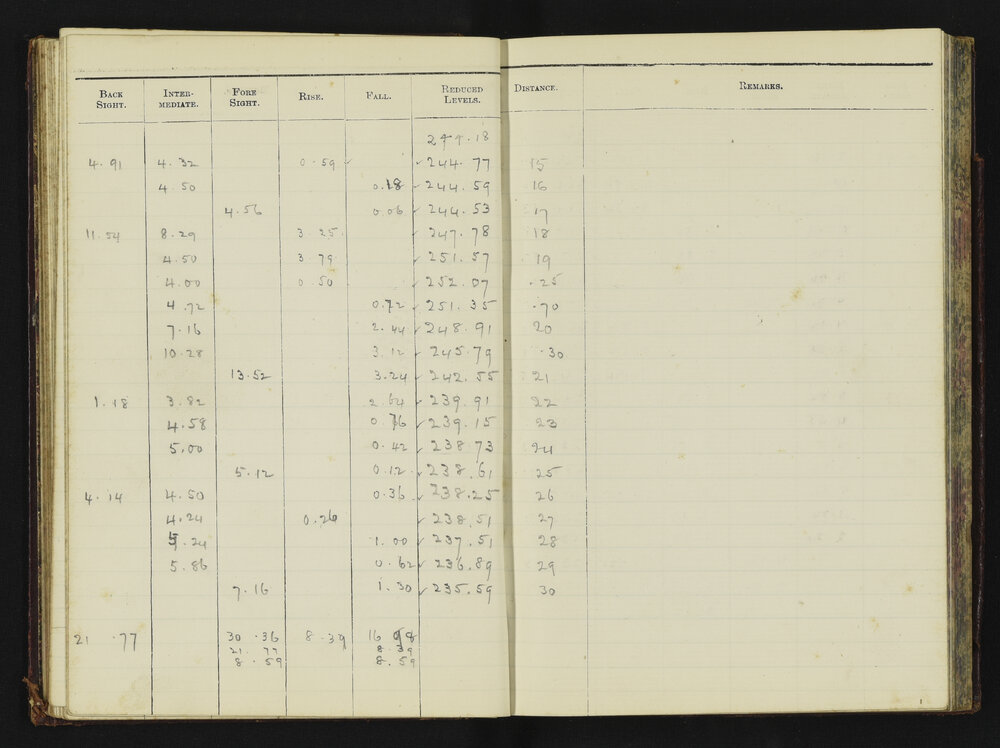 BACK SIGHT. INTER-MEDIATE. FORE SIGHT. RISE. FALL. REDUCED LEVELS. DISTANCE. REMARKS.
244.18
4.91 4.32 0.59 244.77 15
4.50 0.18 244.59 16
4.56 0.06 244.53 17
11.54 8.29 3.25 247.78 18
4.50 3.79 251.57 19
4.00 0.50 252.07 .25
4.72 0.72 251.35 .70
7.16 2.44 248.91 20
10.28 3.12 245.79 .30
13.52 3.24 242.55 21
1.18 3.82 2.64 239.91 22
4.58 0.76 239.15 23
5.00 0.42 238.73 24
5.12 0.12 238.61 25
4.14 4.50 0.36 238.25 26
4.24 0.26 238.51 27
5.24 1.00 237.51 28
5.86 0.62 236.89 29
7.16 1.30 235.59 30
21.77 30.36 8.39 16.98
21.77 8.39
8.59 8.59